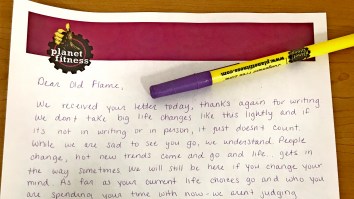 planet
fitness
www.planetfitness.com
Dear Old Flame,
We received your letter today, thanks again for writing
We don't take big life changes like this lightly and if
it's not in writing or in person, it just doesn't count.
While we are sad to see you go, we understand. People
change, hot new trends come and go and life.. gets in
the way sometimes. We will still be here if you change your
mind. As far as your current life choices go and who you
are spending your time with now - we aren't judging